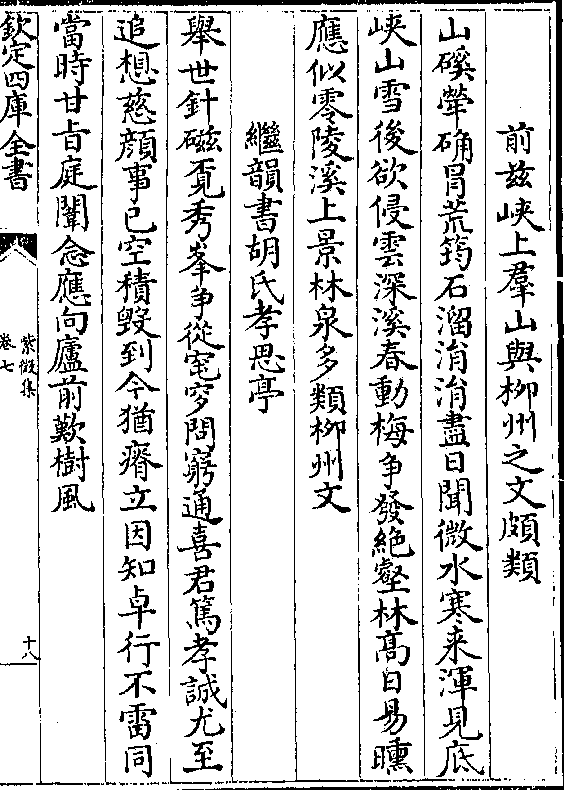 前兹峽上羣山與柳州之文頗類
山磎犖确冒荒筠石溜涓涓盡日聞微水寒来渾見底
峽山雪後欲侵雲深溪春動梅争發絶壑林髙日易曛
應似零陵溪上景林泉多類柳州文
繼韻書胡氏孝思亭
舉世針磁覔秀峯争從窀穸問窮通喜君篤孝誠尤至
追想慈顔事已空積毀到今猶瘠立因知卓行不雷同
當時甘㫖庭闈念應向廬前歎樹風
欽定四庫全書
紫微集
卷七
十八